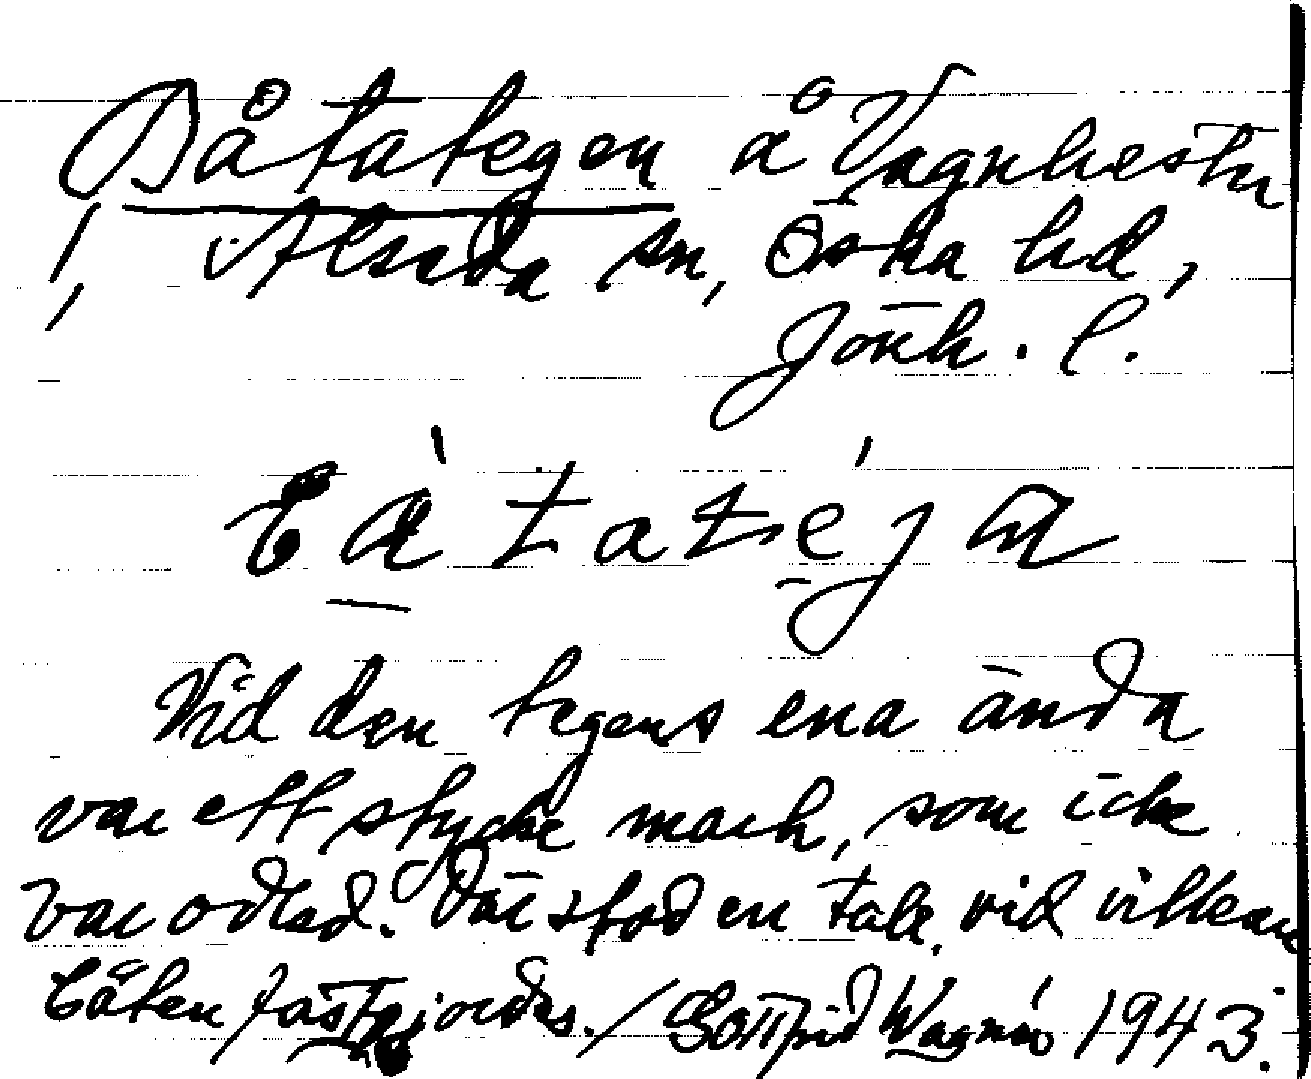 Båtategen å Vagnhester
Alseda sn, Östra hd,
Jönk. l.
bàtatéja
Vid den tegens ena ända
var ett stycke mark, som icke
var odlad. Där stod en tall, vid vilken
båten fastgjordes. / Gottfrid Wagnér 1943.